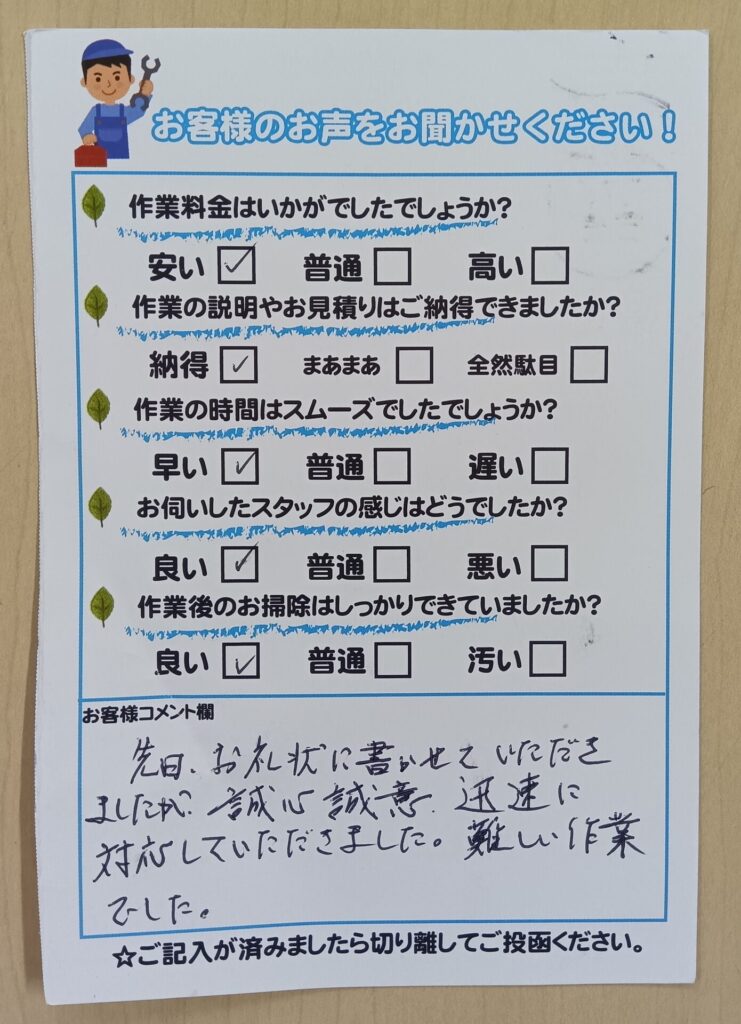 お客様のお声をお聞かせください！
作業料金はいかがでしたでしょうか?
安い ☑ 普通 □ 高い □
作業の説明やお見積りはご納得できましたか?
納得 ☑ まあまあ □ 全然駄目 □
作業の時間はスムーズでしたでしょうか?
早い ☑ 普通 □ 遅い □
お伺いしたスタッフの感じはどうでしたか?
良い ☑ 普通 □ 悪い □
作業後のお掃除はしっかりできていましたか?
良い ☑ 普通 □ 汚い □
お客様コメント欄
先日、お礼状に書かせていただき
ましたが、誠心誠意、迅速に
対応していただきました。難しい作業
でした。
☆ご記入が済みましたら切り離してご投函ください。